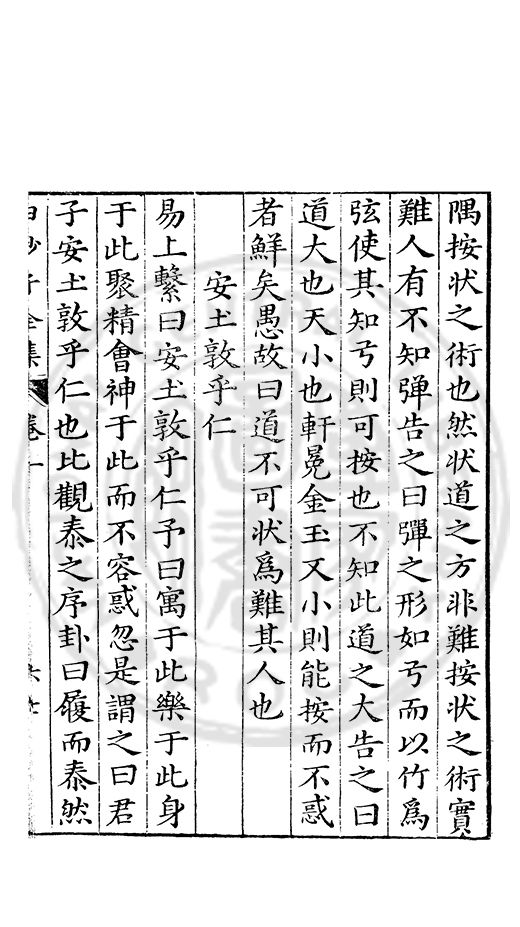 隅按狀之術也然狀道之方非難按狀之術實
難人有不知彈告之曰彈之形如弓而以竹爲
弦使其知弓則可按也不知此道之大告之曰
道大也天小也軒冕金玉又小則能按而不惑
者鮮矣愚故曰道不可狀爲難其人也
安土敦乎仁
易上繫曰安土敦乎仁予曰寓于此樂于此身
于此聚精會神于此而不容惑忽是謂之曰君
子安土敦乎仁也比觀泰之序卦曰履而泰然
子全集 卷一